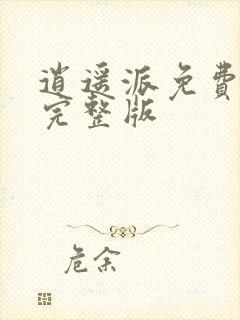 逍遥派免費
完整版
危余